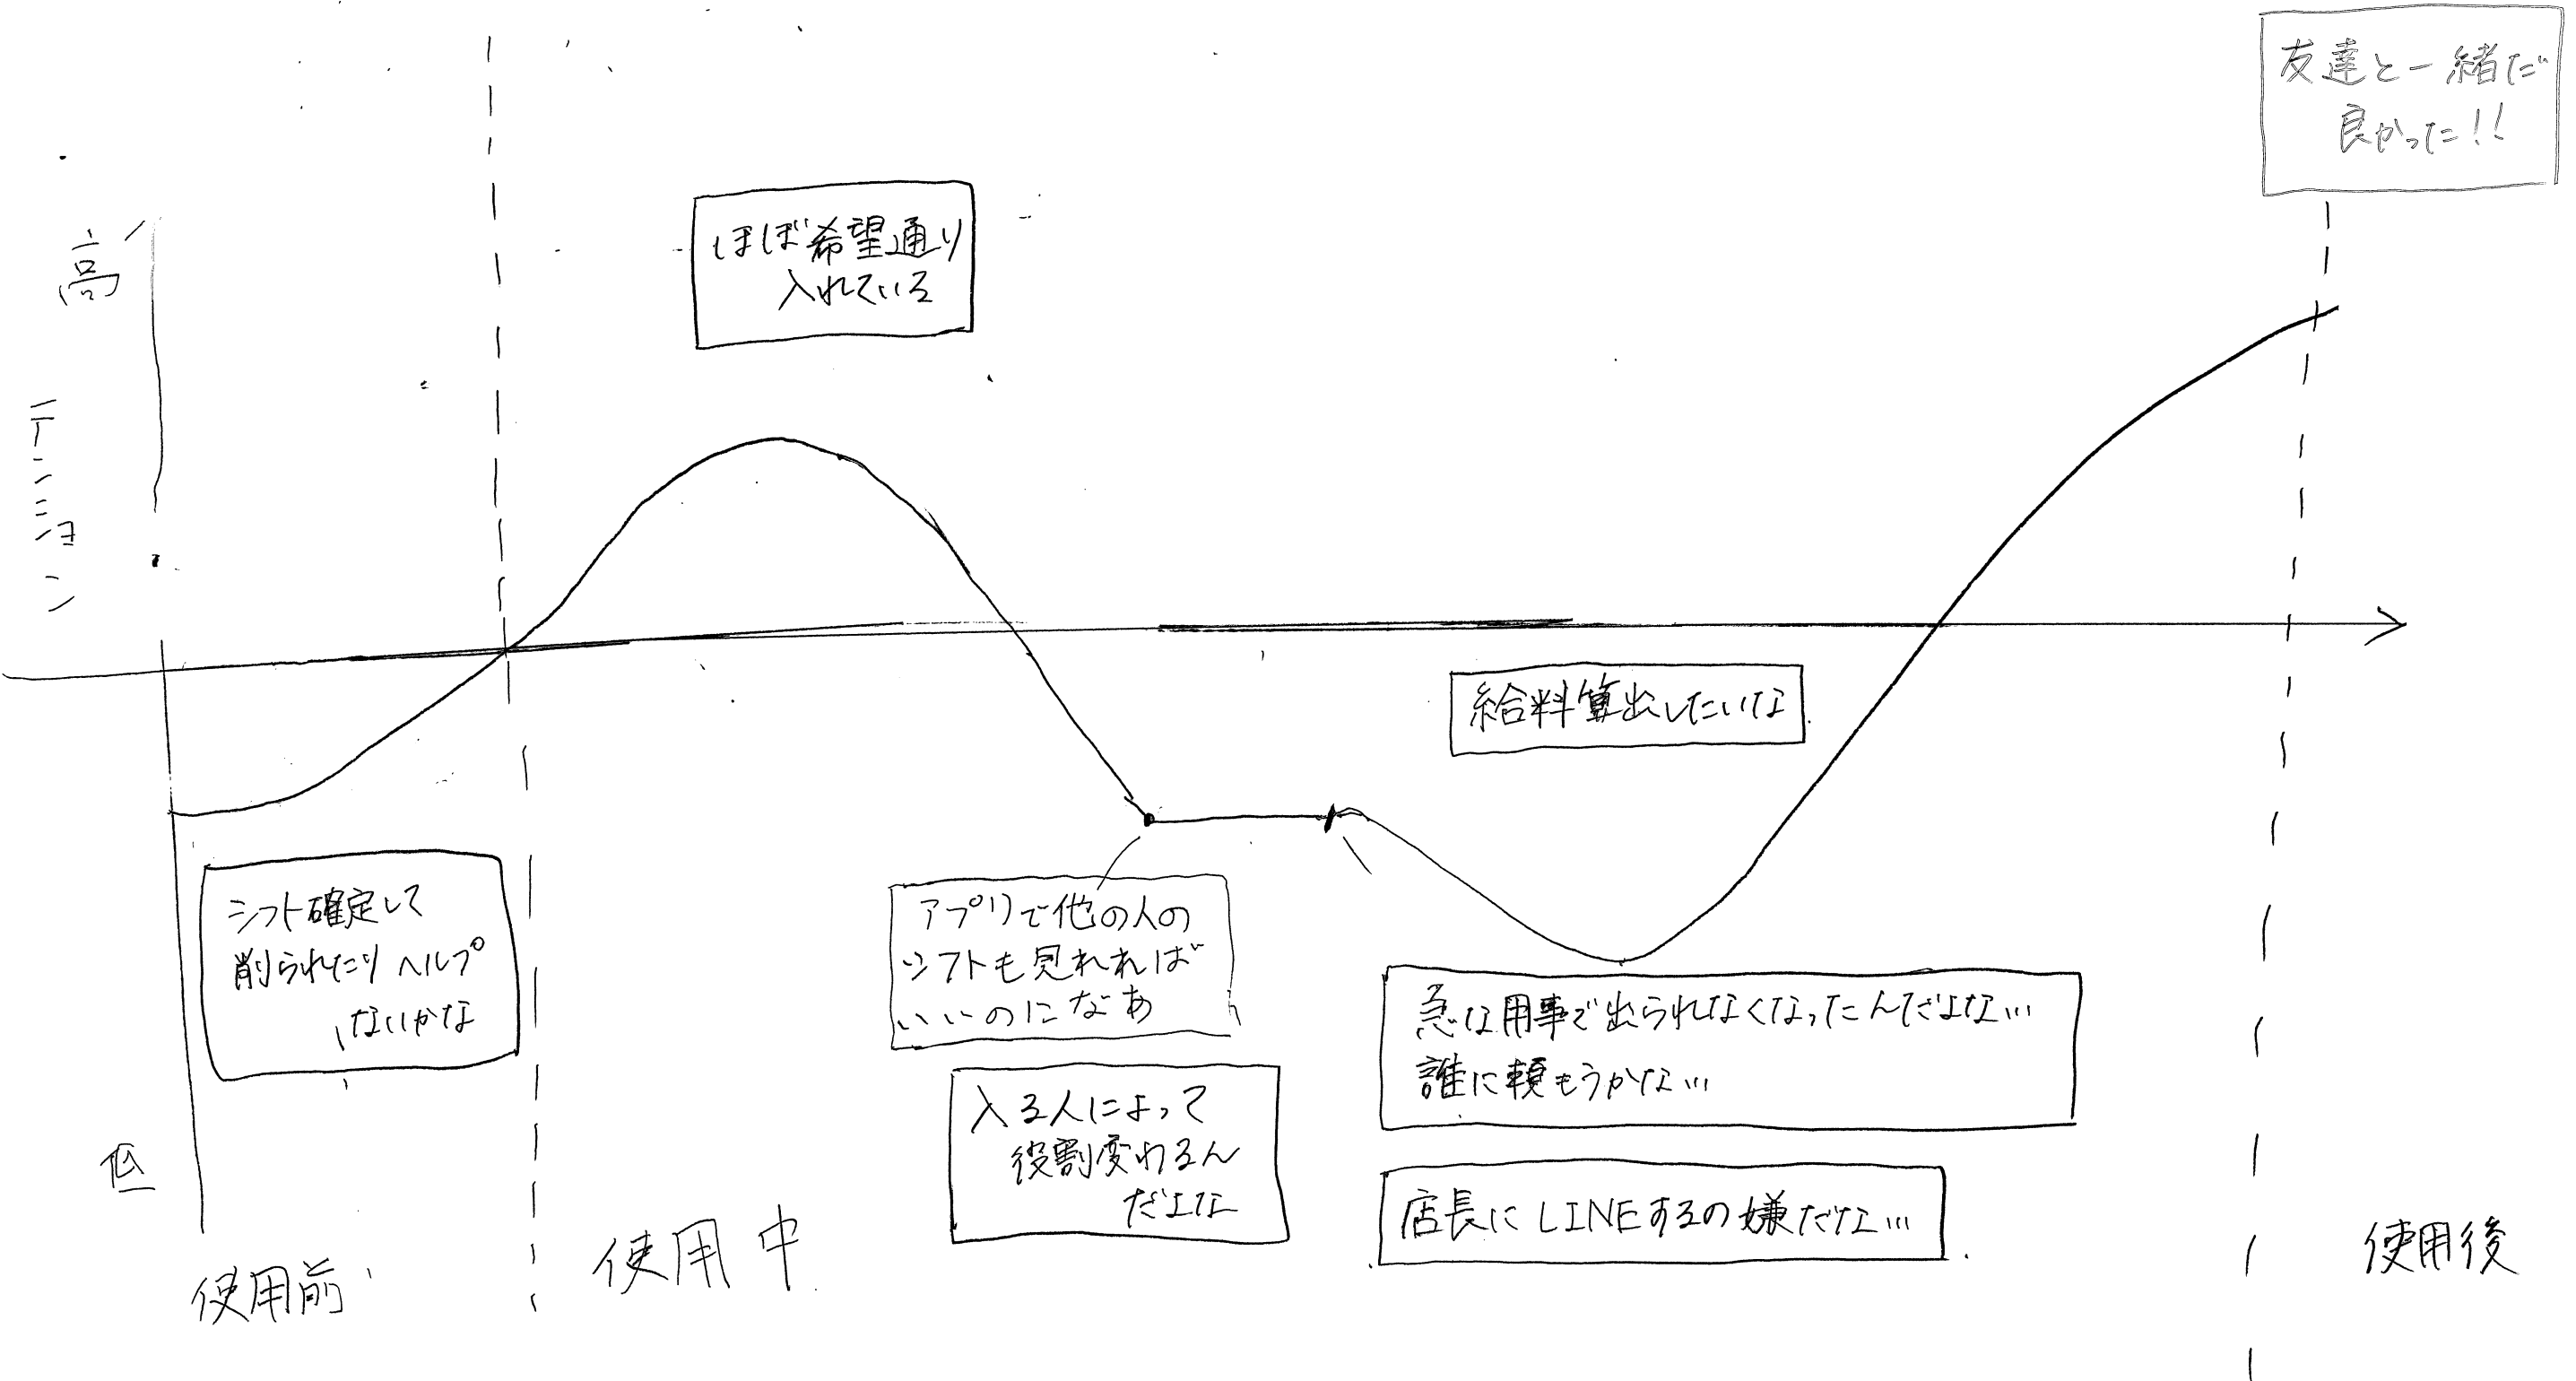 友達と一緒だ
良かった!!
高
テンション
ほぼ希望通り
入れている
給料算出したいな
シフト確定して
削られたりヘルプ
ないかな
アプリで他の人の
シフトも見れれば
いいのになあ
入る人によって
役割変わるん
だよな
急な用事で出られなくなったんだよな…
誰に頼もうかな…
店長にLINEするの嫌だな…
低
使用前
使用中
使用後